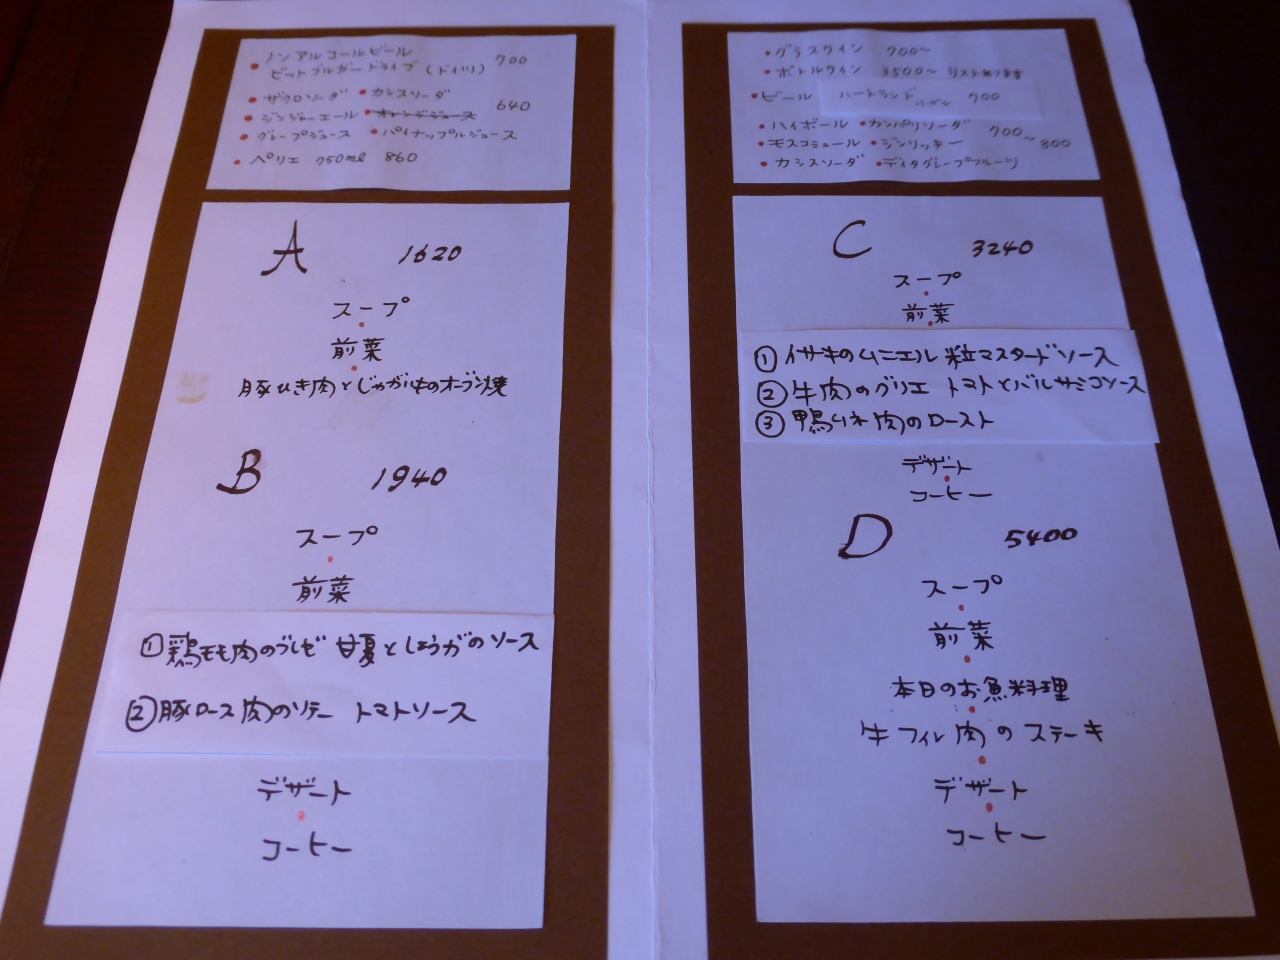 ・ノンアルコールビール
ビットブルガードライブ(ドイツ) 700
・ザクロソーダ ・カシスソーダ
・ジンジャーエール ・オレンジジュース 640
・グレープジュース ・パイナップルジュース
・ペリエ 750ml 860
A 1620
スープ
・
前菜
・
豚ひき肉とじゃがいものオーブン焼
B 1940
スープ
・
前菜
①鶏モモ肉のブレゼ 甘夏としょうがのソース
②豚ロース肉のソテー トマトソース
デザート
・
コーヒー
・グラスワイン 700~
・ボトルワイン 3500~ リストあります
・ビール ハートランド 700
・ハイボール ・カンパリソーダ 700~800
・モスコミュール ・ジンリッキー
・カシスソーダ ・ディタグレープフルーツ
C 3240
スープ
・
前菜
・
①イサキのムニエル 粒マスタードソース
②牛肉のグリエ トマトとバルサミコソース
③鴨ムネ肉のロースト
デザート
・
コーヒー
D 5400
スープ
・
前菜
・
本日のお魚料理
・
牛フィレ肉のステーキ
・
デザート
・
コーヒー